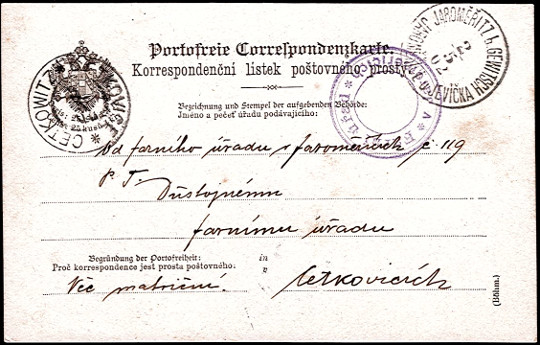 Portofreie Correspondenzkarte.
Korrespondenční lístek poštovného prostý.
CETKOWITZ
Bezeichnung und Stempel der aufgebenden Behörde:
Jméno a pečeť úřadu podávajícího:
JAROMĚŘITZ b. GEWITSCH
JEVÍČKA
Od farního úřadu v Jaroměřicích č. 119
P. T.
Důstojnému
farnímu úřadu
Begründung der Portofreiheit:
Proč korrespondence jest prosta poštovného:
in
v
Věc matriční.
Cetkovicích
(Böhm.)